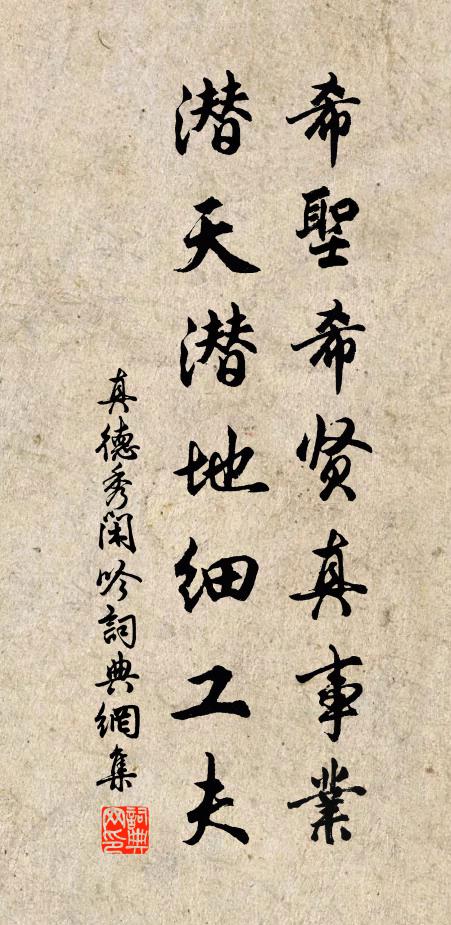 希聖希贤真事業
潜天潜地细工夫
真德秀闲吟詞典網集
詞典网印